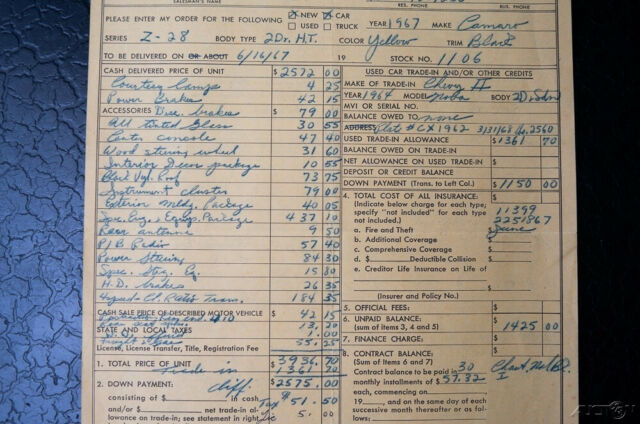 SALESMAN'S NAME
RES. PHONE
BUS. PHONE
PLEASE ENTER MY ORDER FOR THE FOLLOWING X NEW X CAR YEAR 1967 MAKE Camaro
USED TRUCK
SERIES Z-28 BODY TYPE 2Dr. H.T. COLOR Yellow TRIM Black
TO BE DELIVERED ON OR ABOUT 6/16/67 19 STOCK NO. 1106
CASH DELIVERED PRICE OF UNIT $ 2572 00
Courtesy Lamps 4 25
Power Brakes 42 15
ACCESSORIES Disc. brakes 79 00
All tinted Glass 30 55
Center console 47 40
Wood steering wheel 31 60
Interior Decor package 10 55
Black Vyl. Roof 73 75
Instrument cluster 79 00
Exterior Mldg. Package 40 05
Spec. Eng. & Equip. Package 437 10
Rear antenna 9 50
P/B Radio 57 40
Power Steering 84 30
Spec. Strg. Eq. 15 80
H.D. brakes 26 35
4 Speed Cl. Ratio Trans. 184 35
CASH SALE PRICE OF DESCRIBED MOTOR VEHICLE $ 42 15
13.20
STATE AND LOCAL TAXES 1.00
55.25
License, License Transfer, Title, Registration Fee
1. TOTAL PRICE OF UNIT $ 3936.70
Trade in 1361 70
2. DOWN PAYMENT: diff. $ 2575.00
consisting of $ in cash Tax $ 51.50
and/or $ net trade-in al-
lowance on trade-in; see statement in right Lic 5.00
USED CAR TRADE-IN AND/OR OTHER CREDITS
MAKE OF TRADE-IN Chevy II
YEAR 1964 MODEL Nova BODY 2D. Sdn
MVI OR SERIAL NO.
BALANCE OWED TO none
ADDRESS Plat # CX 1962 3/31/68 2560
USED TRADE-IN ALLOWANCE $ 1361 70
BALANCE OWED ON TRADE-IN
NET ALLOWANCE ON USED TRADE-IN $
DEPOSIT OR CREDIT BALANCE
DOWN PAYMENT (Trans. to Left Col.) $ 1150 00
4. TOTAL COST OF ALL INSURANCE:
(Indicate below charge for each type;
specify "not included" for each type
not included.)
11399
2251867
a. Fire and Theft $ June
b. Additional Coverage $
c. Comprehensive Coverage $
d. $ Deductible Collision $
e. Creditor Life Insurance on Life of
$
(Insurer and Policy No.)
5. OFFICIAL FEES: $
6. UNPAID BALANCE: $ 1425 00
(sum of items 3, 4 and 5)
7. FINANCE CHARGE: $
8. CONTRACT BALANCE: $
(Sum of Items 6 and 7)
Contract balance to be paid in 30
monthly installments of $ 57.32
each, commencing on
19 , and on the same day of each
successive month thereafter or as fol-
lows: